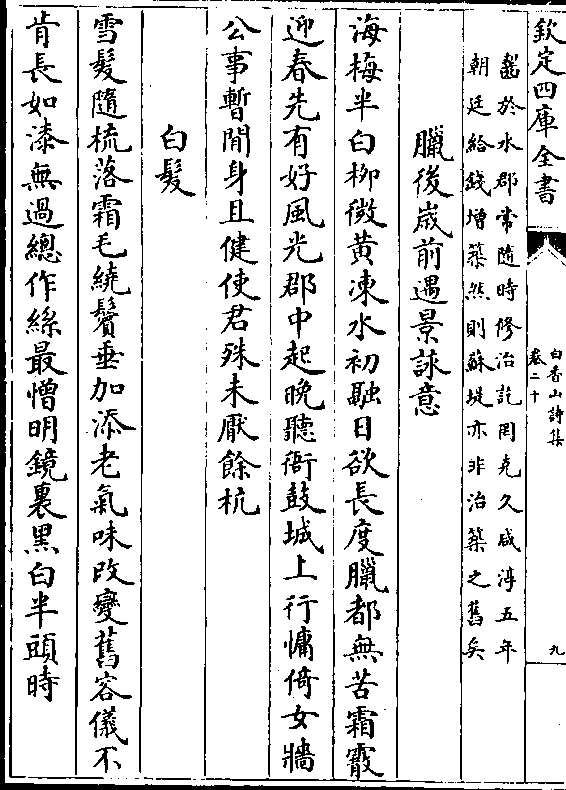 欽定四庫全書
白香山詩集
卷二十
九
齧於水郡常隨時修治訖罔克久咸淳五年
朝廷給錢增築然則蘇堤亦非治築之舊矣
臘後嵗前遇景詠意
海梅半白柳微黃凍水初融日欲長度臘都無苦霜霰
迎春先有好風光郡中起晚聽衙鼓城上行慵倚女牆
公事暫閒身且健使君殊未厭餘杭
白髮
雪髮隨梳落霜毛繞鬢垂加添老氣味改變舊容儀不
肯長如漆無過總作絲最憎明鏡裏黑白半頭時